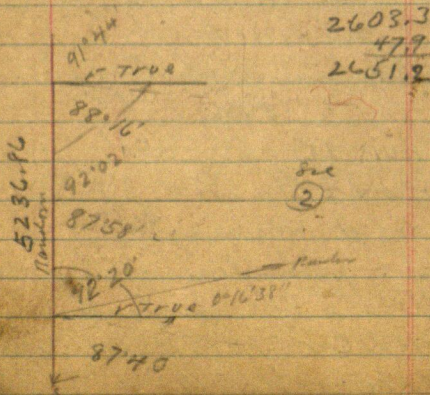 2603.3
47.9
2651.2
91°44'
True
88°16'
92°02'
Sec
2
87°58'
5236.96
Random
92°20'
Random
True 0°16'38"
87°40